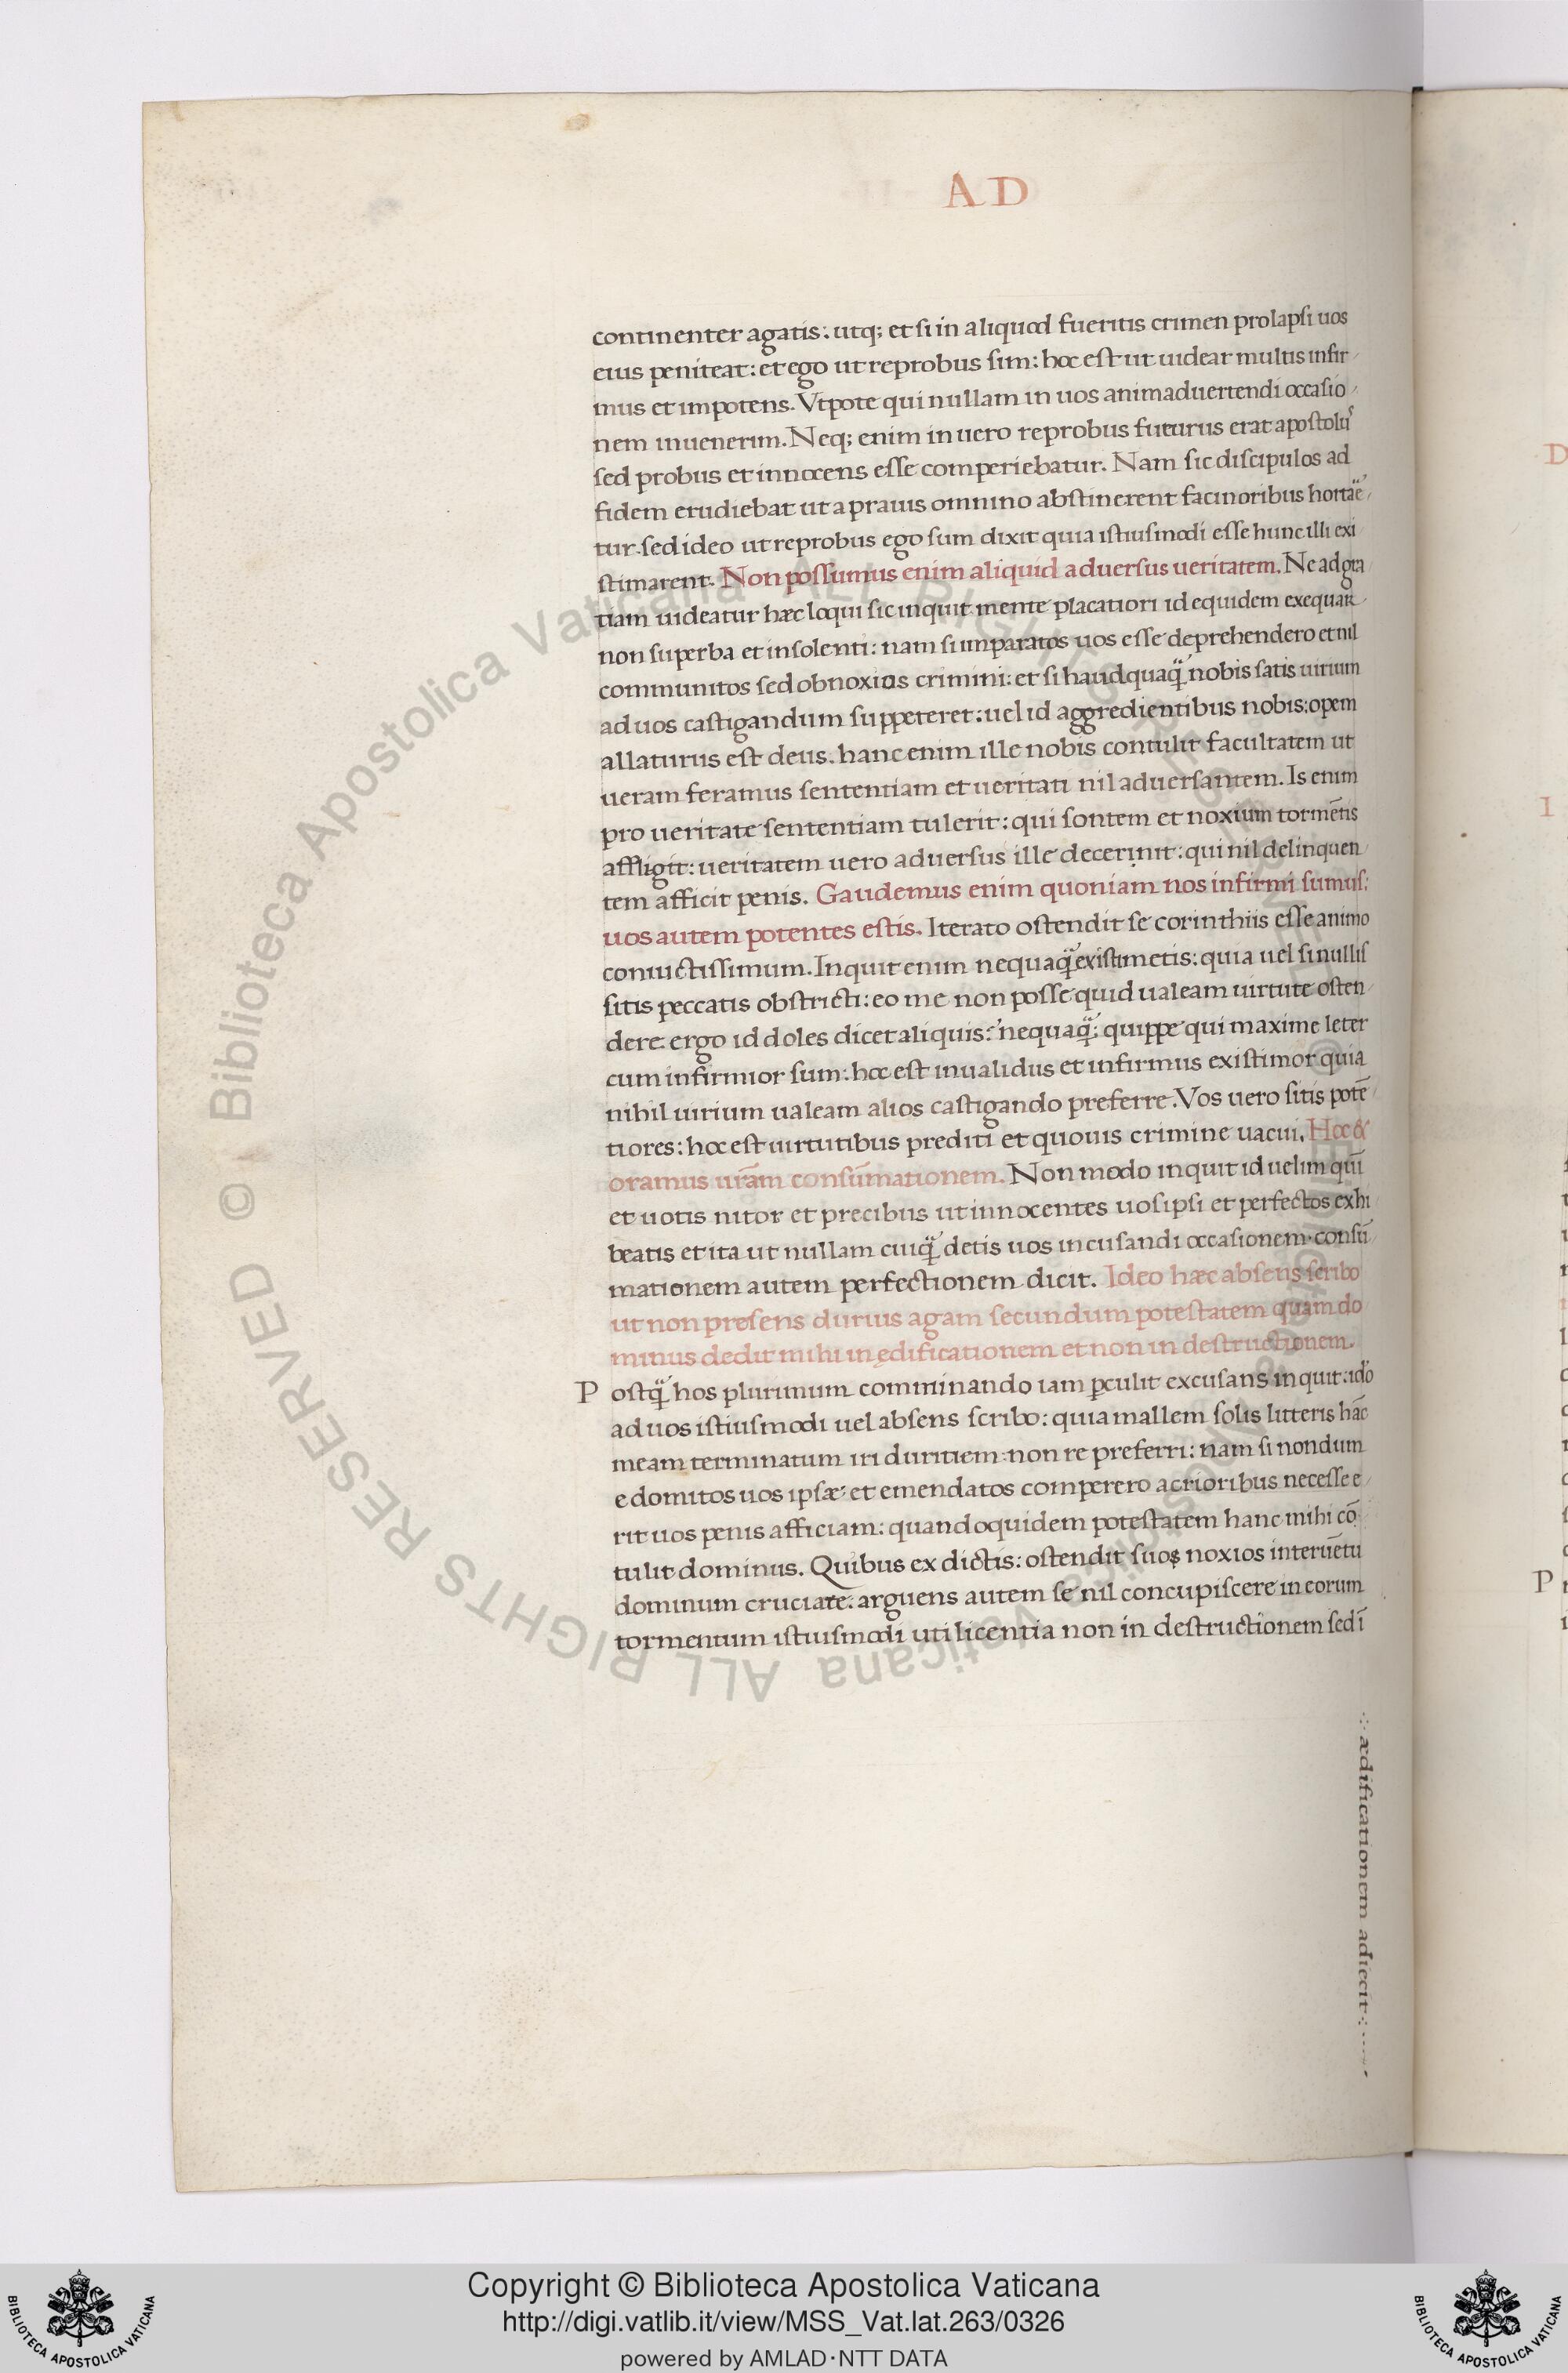 AD
continenter agatis: utq; et si in aliquod fueritis crimen prolapsi uos
eius peniteat: et ego ut reprobus sim: hoc est ut uidear multis infir
mus et impotens. Vtpote qui nullam in uos animaduertendi occasio
nem inuenerim. Neq; enim in uero reprobus futurus erat apostolus
sed probus et innocens esse comperiebatur. Nam sic discipulos ad
fidem erudiebat ut a prauis omnino abstinerent facinoribus hortāe
tur. sed ideo ut reprobus ego sum dixit quia istiusmodi esse hunc illi exi
stimarent. Non possumus enim aliquid aduersus ueritatem. Ne ad gra
tiam uideatur hæc loqui sic inquit mente placatiori id equidem exequar
non superba et insolenti: nam si imparatos uos esse deprehendero et nil
communitos sed obnoxios crimini: et si haudquaq̃ nobis satis uirium
ad uos castigandum suppeteret: uel id aggredientibus nobis: opem
allaturus est deus. hanc enim ille nobis contulit facultatem ut
ueram feramus sententiam et ueritati nil aduersantem. Is enim
pro ueritate sententiam tulerit: qui sontem et noxium tormētis
affligit: ueritatem uero aduersus ille decerinit: qui nil delinquen
tem afficit penis. Gaudemus enim quoniam nos infirmi sumus:
uos autem potentes estis. Iterato ostendit se corinthiis esse animo
coniuctissimum. Inquit enim nequaq̃ existimetis: quia uel si nullis
sitis peccatis obstricti: eo me non posse quid ualeam uirtute osten
dere. ergo id doles dicet aliquis: nequaq̃: quippe qui maxime leter
cum infirmior sum: hoc est inualidus et infirmus existimor quia
nihil uirium ualeam alios castigando preferre. Vos uero sitis potē
tiores: hoc est uirtutibus prediti et quouis crimine uacui. Hoc &
oramus urām consūmationem. Non modo inquit id uelim quī
et uotis nitor et precibus ut innocentes uos ipsi et perfectos exhi
beatis et ita ut nullam cuiq̃ detis uos incusandi occasionem. consū
mationem autem perfectionem dicit. Ideo hæc absens scribo
ut non presens durius agam secundum potestatem quam do
minus dedit mihi in ędificationem et non in destructionem.
P ostq̃ hos plurimum comminando iam ꝑculit excusans inquit: idō
ad uos istiusmodi uel absens scribo: quia mallem solis litteris hāc
meam terminatum iri duritiem: non re preferri: nam si nondum
edomitos uos ipsæ: et emendatos comperero acrioribus necesse e
rit uos penis afficiam: quandoquidem potestatem hanc mihi cō
tulit dominus. Quibus ex dictis: ostendit suos noxios interuētu
dominum cruciate: arguens autem se nil concupiscere in eorum
tormentum istiusmodi uti licentia non in destructionem sed ī
ædificationem adiecit
Copyright © Biblioteca Apostolica Vaticana
http://digi.vatlib.it/view/MSS_Vat.lat.263/0326
powered by AMLAD·NTT DATA
BIBLIOTECA APOSTOLICA VATICANA
BIBLIOTECA APOSTOLICA VATICANA
© Biblioteca Apostolica Vaticana ALL RIGHTS RESERVED © Biblioteca Apostolica Vaticana ALL RIGHTS RESERVED
D
I
P